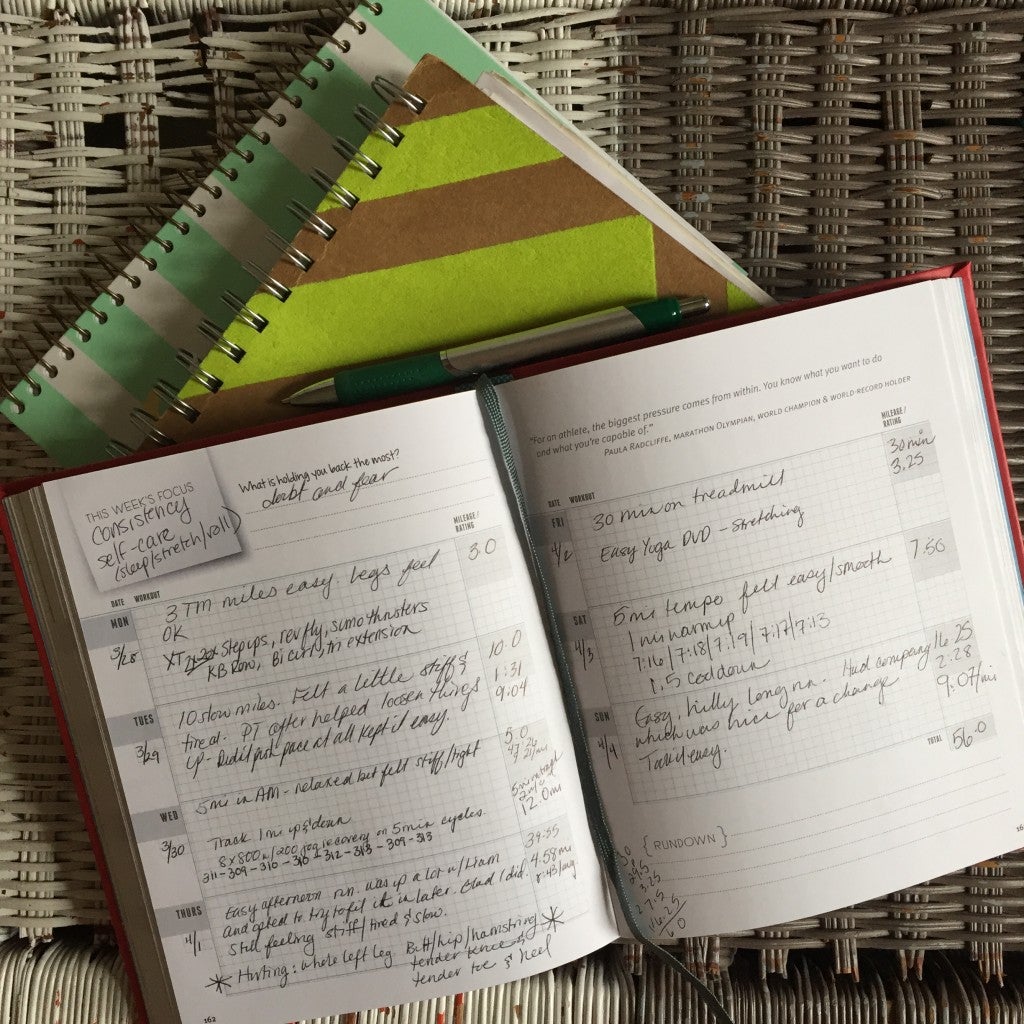 THIS WEEK'S FOCUS
Consistency
self-care
(sleep/stretch/roll)
What is holding you back the most?
debt and fear
DATE WORKOUT MILEAGE / RATING
MON
3/28
3 TM miles easy. legs feel
OK
XT Stepups, rev fly, sumo thrusters
KB Rows, Bi curl, tri extension
3.0
TUES
3/29
10 slow miles. Felt a little stiff &
tired. PT after helped loosen things
up - Didn't push pace at all kept it easy.
10.0
1:31
9:04
WED
3/30
5mi in AM - relaxed but felt stiff/tight
Track 1mi up & down
8x800 w/200 jog recovery on 5min cycles.
311-309-310-310-312-313-309-313
5.0
12.0mi
THURS
4/1
Easy afternoon run. was up a lot w/Liam
and opted to try to fit it in later. Glad I did.
Still feeling stiff/tired & slow.
39:55
4.58mi
8:43/avg.
* Hurting: whole left leg. Butt/hip/hamstring *
tender toe & heel
162
"For an athlete, the biggest pressure comes from within. You know what you want to do
and what you're capable of."
PAULA RADCLIFFE, MARATHON OLYMPIAN, WORLD CHAMPION & WORLD-RECORD HOLDER
DATE WORKOUT MILEAGE / RATING
FRI
4/2
30 min on treadmill
Easy Yoga DVD - Stretching
30 min
3.25
SAT
4/3
5mi tempo felt easy/smooth
1 mi warmup
7:16/7:18/7:19/7:17/7:13
1.5 cooldown
7.50
SUN
4/4
Easy, hilly long run. Had company
which was nice for a change
Took it easy.
16.25
2:28
9:07/mi
TOTAL 56.0
{ RUNDOWN }
3.25
27.5
16.25